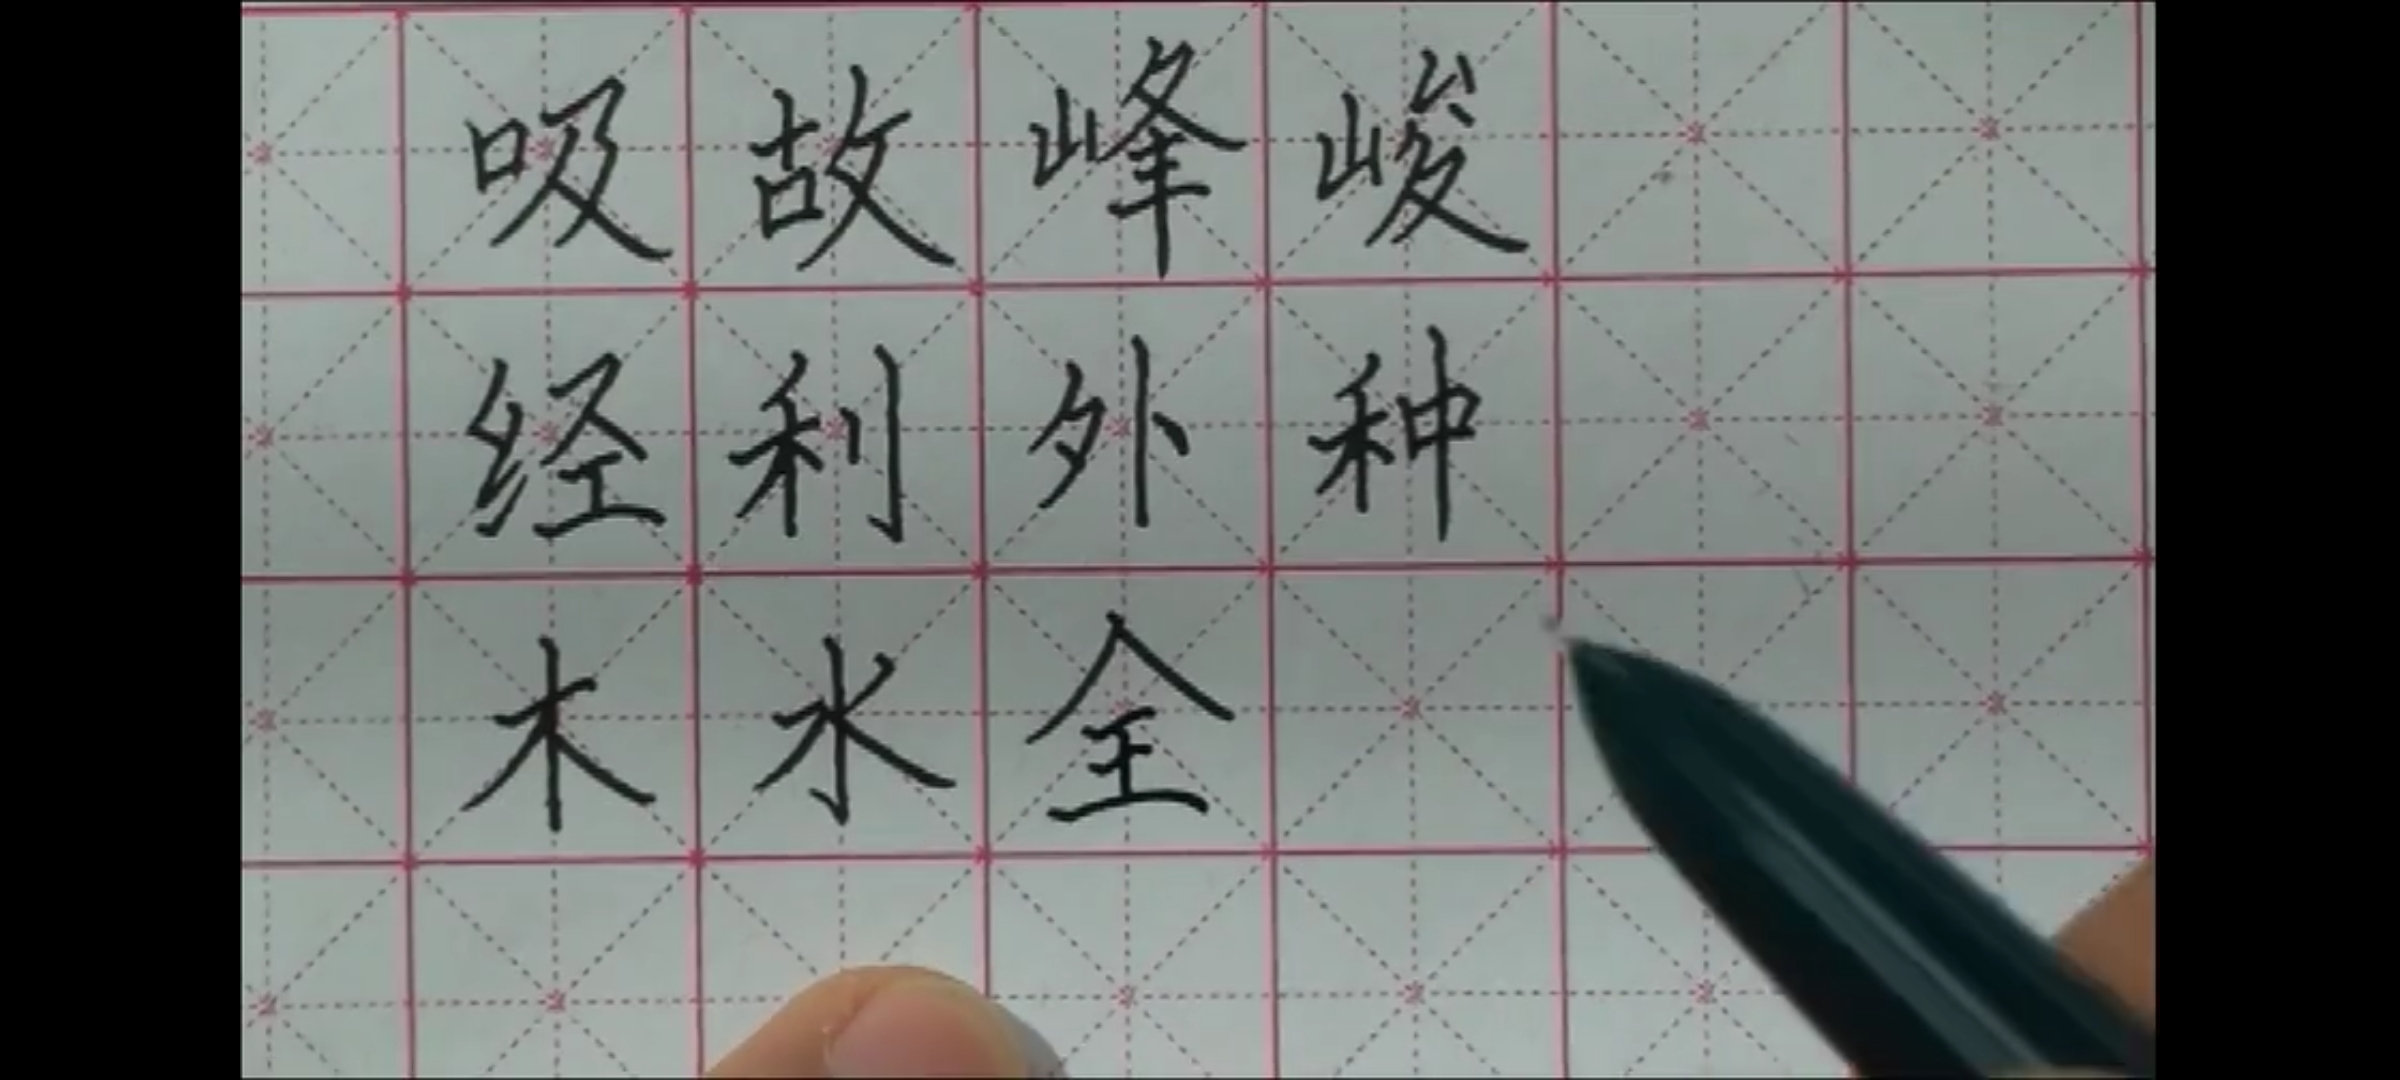 吸故峰峻
经利外种
木水全